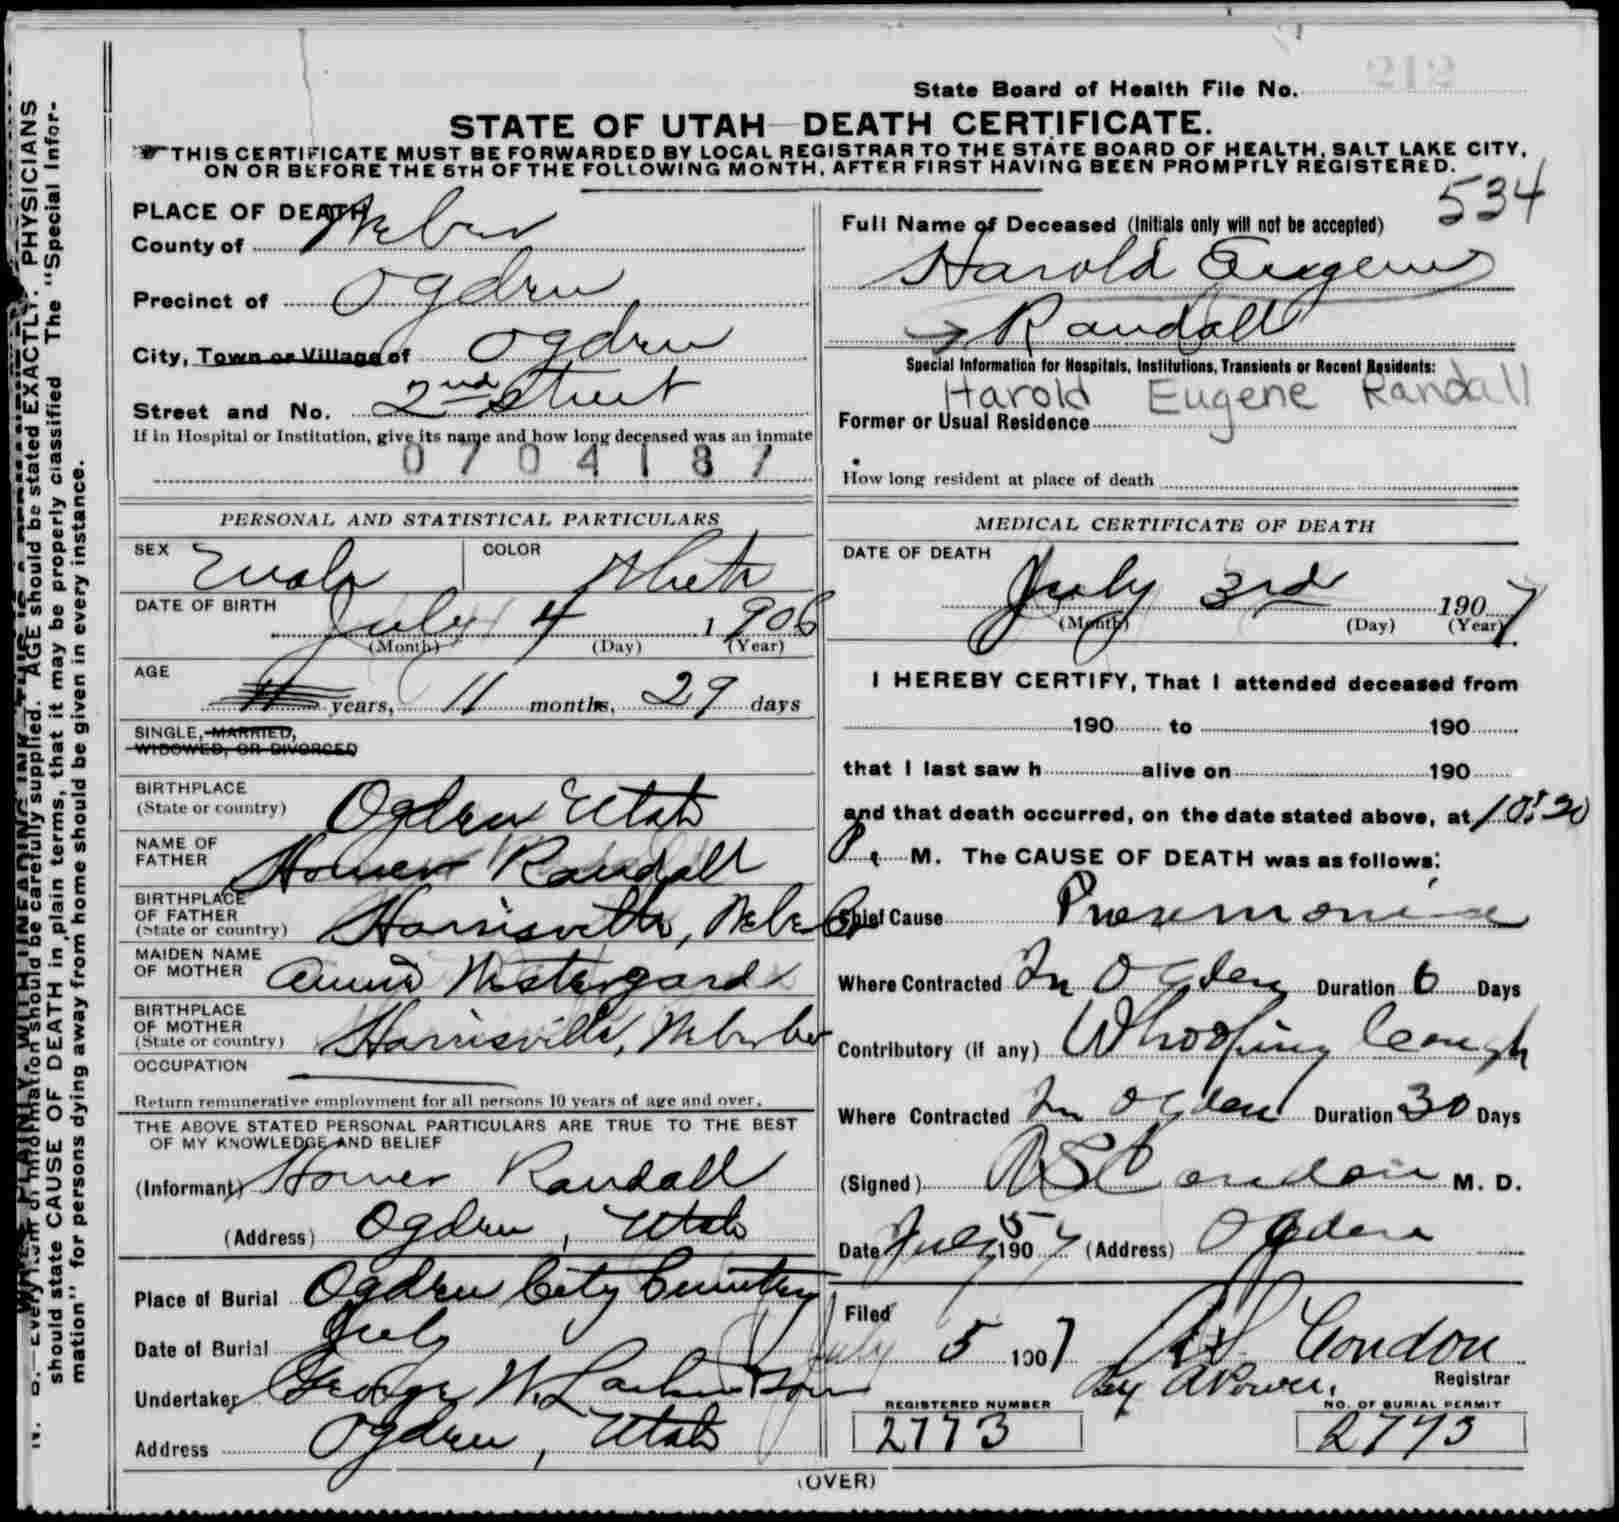 State Board of Health File No. 212
STATE OF UTAH—DEATH CERTIFICATE.
THIS CERTIFICATE MUST BE FORWARDED BY LOCAL REGISTRAR TO THE STATE BOARD OF HEALTH, SALT LAKE CITY,
ON OR BEFORE THE 5TH OF THE FOLLOWING MONTH, AFTER FIRST HAVING BEEN PROMPTLY REGISTERED.
534
PLACE OF DEATH
County of Weber
Precinct of Ogden
City, Town or Village of Ogden
Street and No. 2nd Street
If in Hospital or Institution, give its name and how long deceased was an inmate
0704187
Full Name of Deceased (Initials only will not be accepted)
Harold Eugene
Randall
Special Information for Hospitals, Institutions, Transients or Recent Residents:
Harold Eugene Randall
Former or Usual Residence
How long resident at place of death
PERSONAL AND STATISTICAL PARTICULARS
SEX Male COLOR White
DATE OF BIRTH
July 4 1906
(Month) (Day) (Year)
AGE
years, 11 months, 29 days
SINGLE, MARRIED,
WIDOWED, OR DIVORCED
BIRTHPLACE
(State or country) Ogden Utah
NAME OF
FATHER Homer Randall
BIRTHPLACE
OF FATHER
(State or country) Harrisville, Weber Co
MAIDEN NAME
OF MOTHER Annie Westergard
BIRTHPLACE
OF MOTHER
(State or country) Harrisville, Weber Co
OCCUPATION
Return remunerative employment for all persons 10 years of age and over.
THE ABOVE STATED PERSONAL PARTICULARS ARE TRUE TO THE BEST
OF MY KNOWLEDGE AND BELIEF
(Informant) Homer Randall
(Address) Ogden, Utah
Place of Burial Ogden City Cemetery
Date of Burial July
Undertaker George W. Larkin & Sons
Address Ogden, Utah
MEDICAL CERTIFICATE OF DEATH
DATE OF DEATH
July 3rd 1907
(Month) (Day) (Year)
I HEREBY CERTIFY, That I attended deceased from
190 to 190
that I last saw h alive on 190
and that death occurred, on the date stated above, at 10:20
P. M. The CAUSE OF DEATH was as follows:
Chief Cause Pneumonia
Where Contracted In Ogden Duration 6 Days
Contributory (if any) Whooping Cough
Where Contracted In Ogden Duration 30 Days
(Signed) A S Condon M. D.
Date July 5 1907 (Address) Ogden
Filed
July 5 1907 A.S. Condon
Registrar
By A Power.
REGISTERED NUMBER
2773
NO. OF BURIAL PERMIT
2773
(OVER)
N. B.—Every item of information should be carefully supplied. AGE should be stated EXACTLY. PHYSICIANS
should state CAUSE OF DEATH in plain terms, that it may be properly classified The "Special Infor-
mation" for persons dying away from home should be given in every instance.